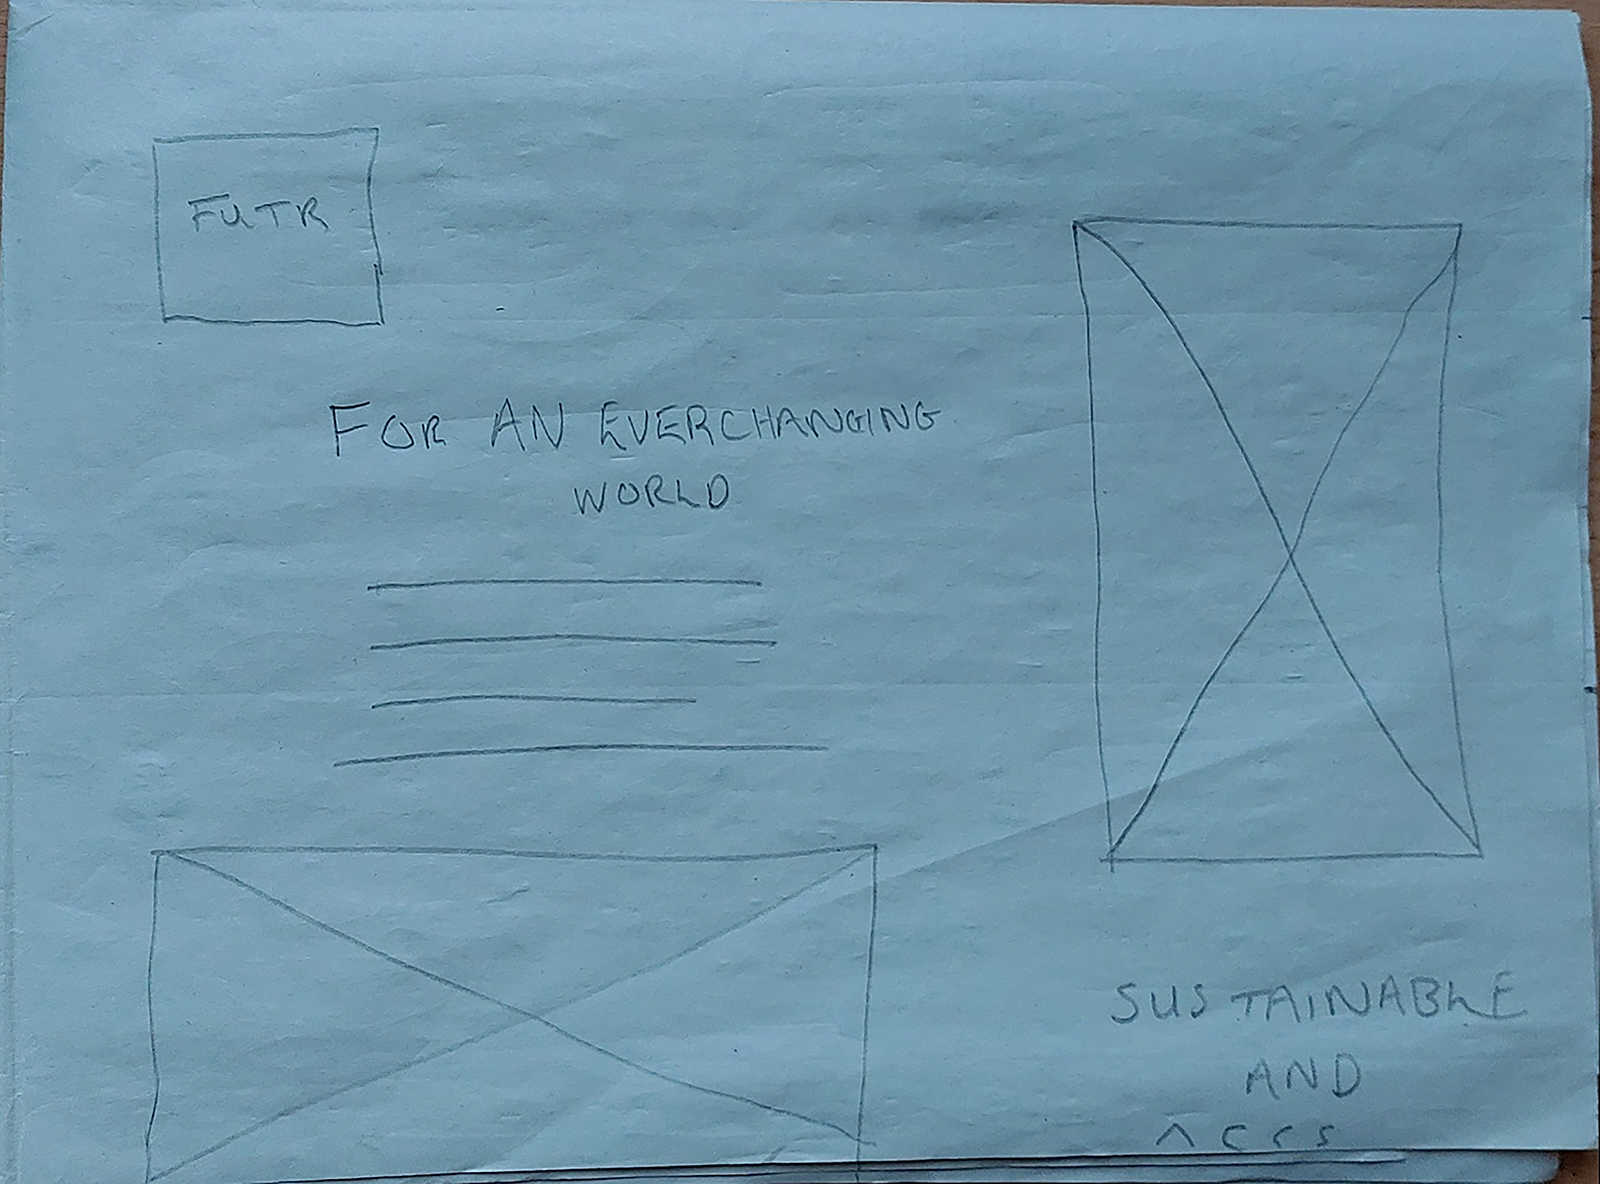 FUTR
FOR AN EVERCHANGING
WORLD
SUSTAINABLE
AND